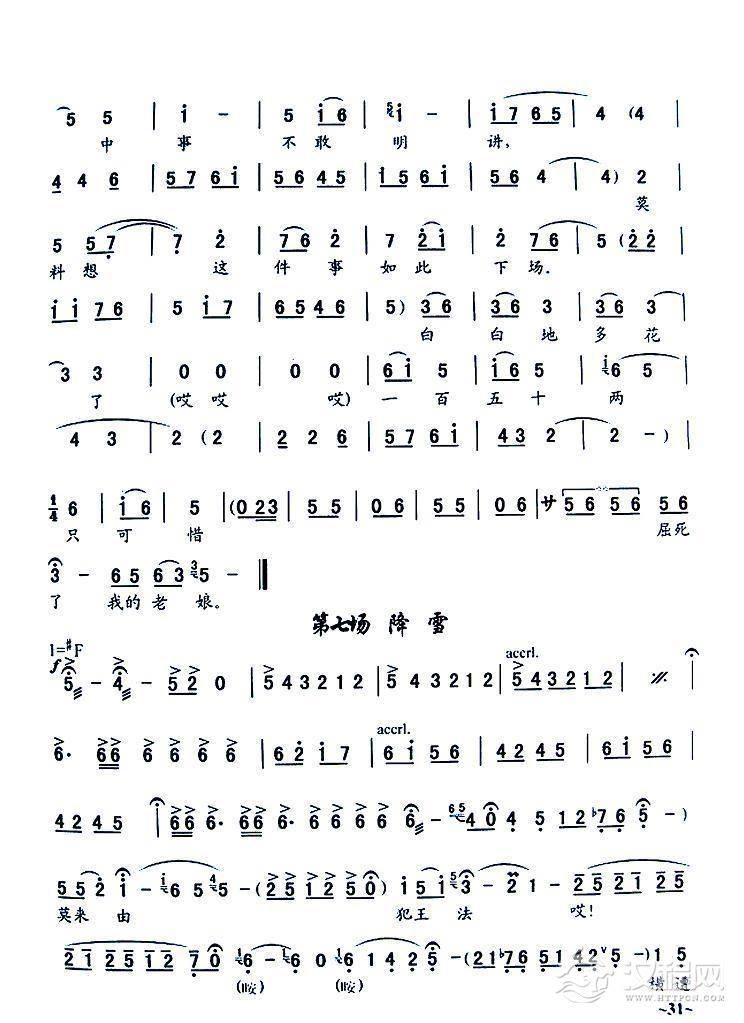 5 5 | i - | 5 i 6 | 5 i - | i 7 6 5 | 4 (4 |
中 事 不 敢 明 讲,
4 4 6 | 5 7 6 i | 5 6 4 5 | i 5 6 i | 5 6 4 | 4) 2 |
莫
5 5 7 | 7 2 | 7 6 2 | 7 2 i | 2 7 6 | 5 (2 2 |
料 想 这 件 事 如 此 下 场.
i i 7 6 | 5 i 7 | 6 5 4 6 | 5) 3 6 | 3 6 5 | 3 6 3 |
白 白 地 多 花
3 3 | 0 0 | 0 0 | 6 i 5 | 6 5 | 6 5 |
了 (哎 哎 哎) 一 百 五 十 两
4 3 | 2 (2 | 2 2 6 | 5 7 6 i | 4 3 2 | 2 -) |
1/4 6 | i 6 | 5 | (0 2 3 | 5 5 | 0 6 | 5 5 | 0 6 | サ 5 6 5 6 5 6
只 可 惜 屈死
3 - 6 5 6 3 5 -
了 我的 老 娘。
第七场 降 雪
1=#F
f 5 - 4 - 5 2 0 | 5 4 3 2 1 2 | 5 4 3 2 1 2 | accrl. 5 4 3 2 1 2 | |
6· 6 6 6 6 6 6 | 6 2 i 7 | accrl. 6 i 5 6 | 4 2 4 5 | 6 i 5 6 |
4 2 4 5 | 6 6 6· 6 6 6· 6 6 6 6 - 6 5 4 0 4 5 1 2 ♭7 6 6 -)
5 5 2 i - 6 5 5 - (2 5 1 2 5 0) i 5 i 3 - 2 1 - 2 5 2 1 2 5
莫来 由 犯王 法 哎!
2 1 2 1 5 1 2 0 7 6 - 6 0 6 1 4 2 - (2 1 ♭7 6 5 1 4 2 5 -) 1 5
(唵) (唵) 横 遭
汉程网
HTTPCN.COM
~31~